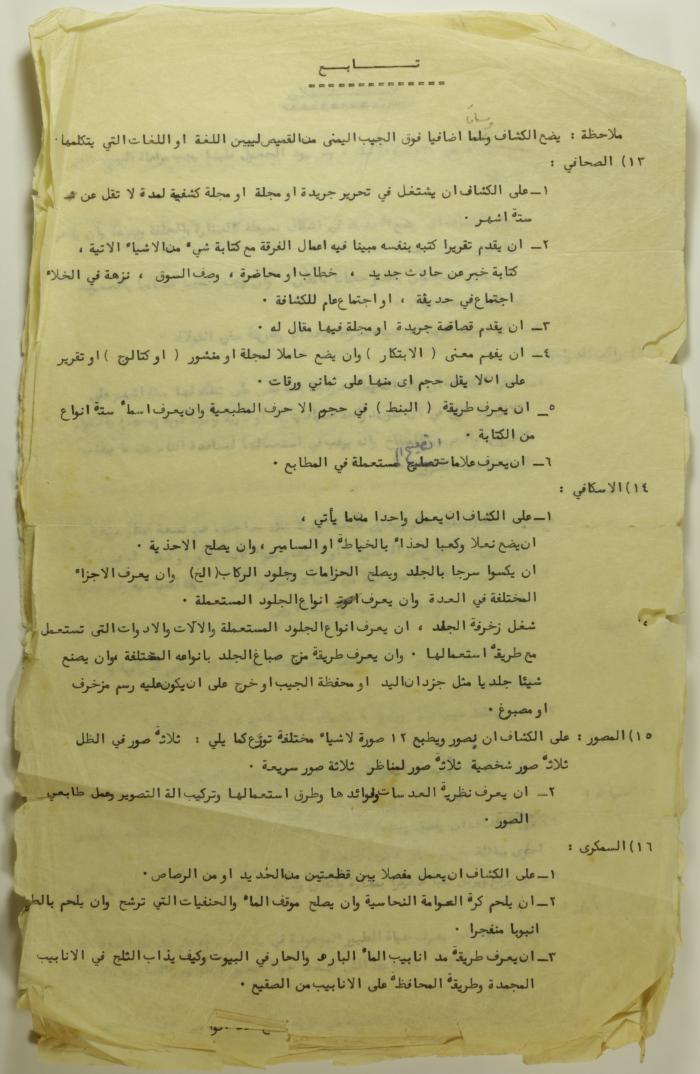 تـــــابـــع
ملاحظة : يضع الكشاف وساما اضافيا فوق الجيب اليمنى من القميص ليبين اللغة او اللغات التي يتكلمها ٠
١٣) الصحافي :
١ــ على الكشاف ان يشتغل في تحرير جريدة او مجلة او مجلة كشفية لمدة لا تقل عن
ستة اشهر ٠
٢ــ ان يقدم تقريرا كتبه بنفسه مبينا فيه اعمال الفرقة مع كتابة شيء من الاشياء الاتية ،
كتابة خبر عن حادث جديد ، خطاب او محاضرة ، وصف السوق ، نزهة في الخلاء
اجتماع في حديقة ، او اجتماع عام للكشافة ٠
٣ــ ان يقدم قصاصة جريدة او مجلة فيها مقال له ٠
٤ــ ان يفهم معنى ( الابتكار ) وان يضع حاملا لمجلة او منشور ( او كتالج ) او تقرير
على ان لا يقل حجم اى منها على ثماني ورقات ٠
٥ــ ان يعرف طريقة ( البنط ) في حجم الاحرف المطبعية وان يعرف اسماء ستة انواع
من الكتابة ٠
٦ــ ان يعرف علامات التصليح المستعملة في المطابع ٠
١٤) الاسكافي :
١ــ على الكشاف ان يعمل واحدا مما يأتي ،
ان يضع نعلا وكعبا لحذاء بالخياطة او المسامير ، وان يصلح الاحذية ٠
ان يكسوا سرجا بالجلد ويصلح الحزامات وجلود الركاب (الخ) وان يعرف الاجزاء
المختلفة في العدة وان يعرف انواع الجلود المستعملة ٠
شغل زخرفة الجلد ، ان يعرف انواع الجلود المستعملة والآلات والادوات التى تستعمل
مع طريقة استعمالها ٠ وان يعرف طريقة مزج صباغ الجلد بانواعه المختلفة وان يصنع
شيئا جلديا مثل جزدان اليد او محفظة الجيب او خرج على ان يكون عليه رسم مزخرف
او مصبوغ ٠
١٥) المصور : على الكشاف ان يصور ويطبع ١٢ صورة لاشياء مختلفة توزع كما يلي : ثلاثة صور في الظل
ثلاثة صور شخصية ثلاثة صور لمناظر ثلاثة صور سريعة ٠
٢ــ ان يعرف نظرية العدسات وفوائدها وطرق استعمالها وتركيب الة التصوير وعمل طابعي
الصور ٠
١٦) السمكرى :
١ــ على الكشاف ان يعمل مفصلا بين قطعتين من الحديد او من الرصاص ٠
٢ــ ان يلحم كرة العوامة النحاسية وان يصلح موقف الماء والحنفيات التي ترشح وان يلحم
انبوبا منفجرا ٠
٣ــ ان يعرف طريقة مد انابيب الماء البارد والحار في البيوت وكيف يذاب الثلج في الانابيب
المجمدة وطريقة المحافظة على الانابيب من الصقيع ٠